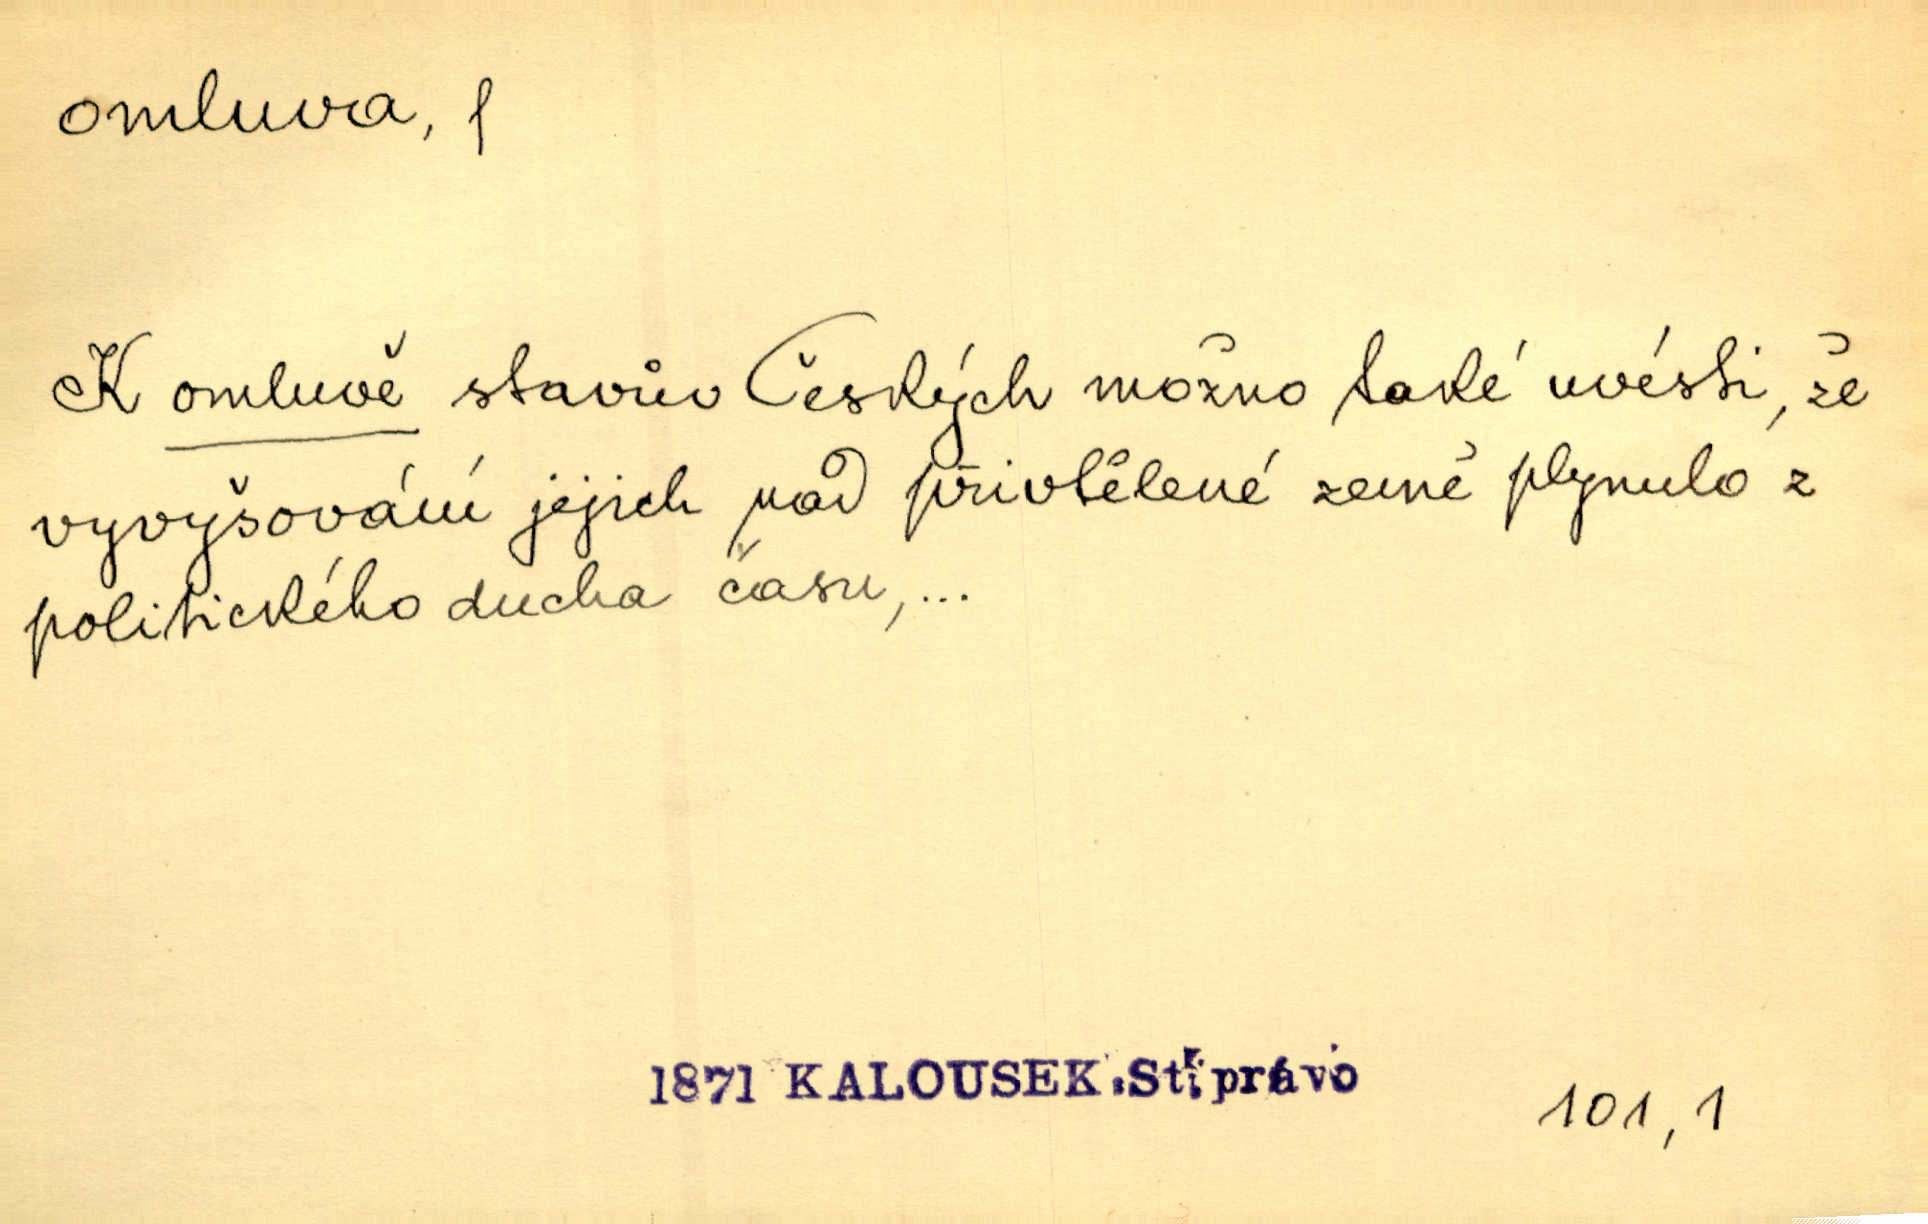 omluva, f
K omluvě stavův Českých možno také uvésti, že
vyvyšování jejich nad přivtělené země plynulo z
politického ducha času,...
1871 KALOUSEK.St.právo
101,1